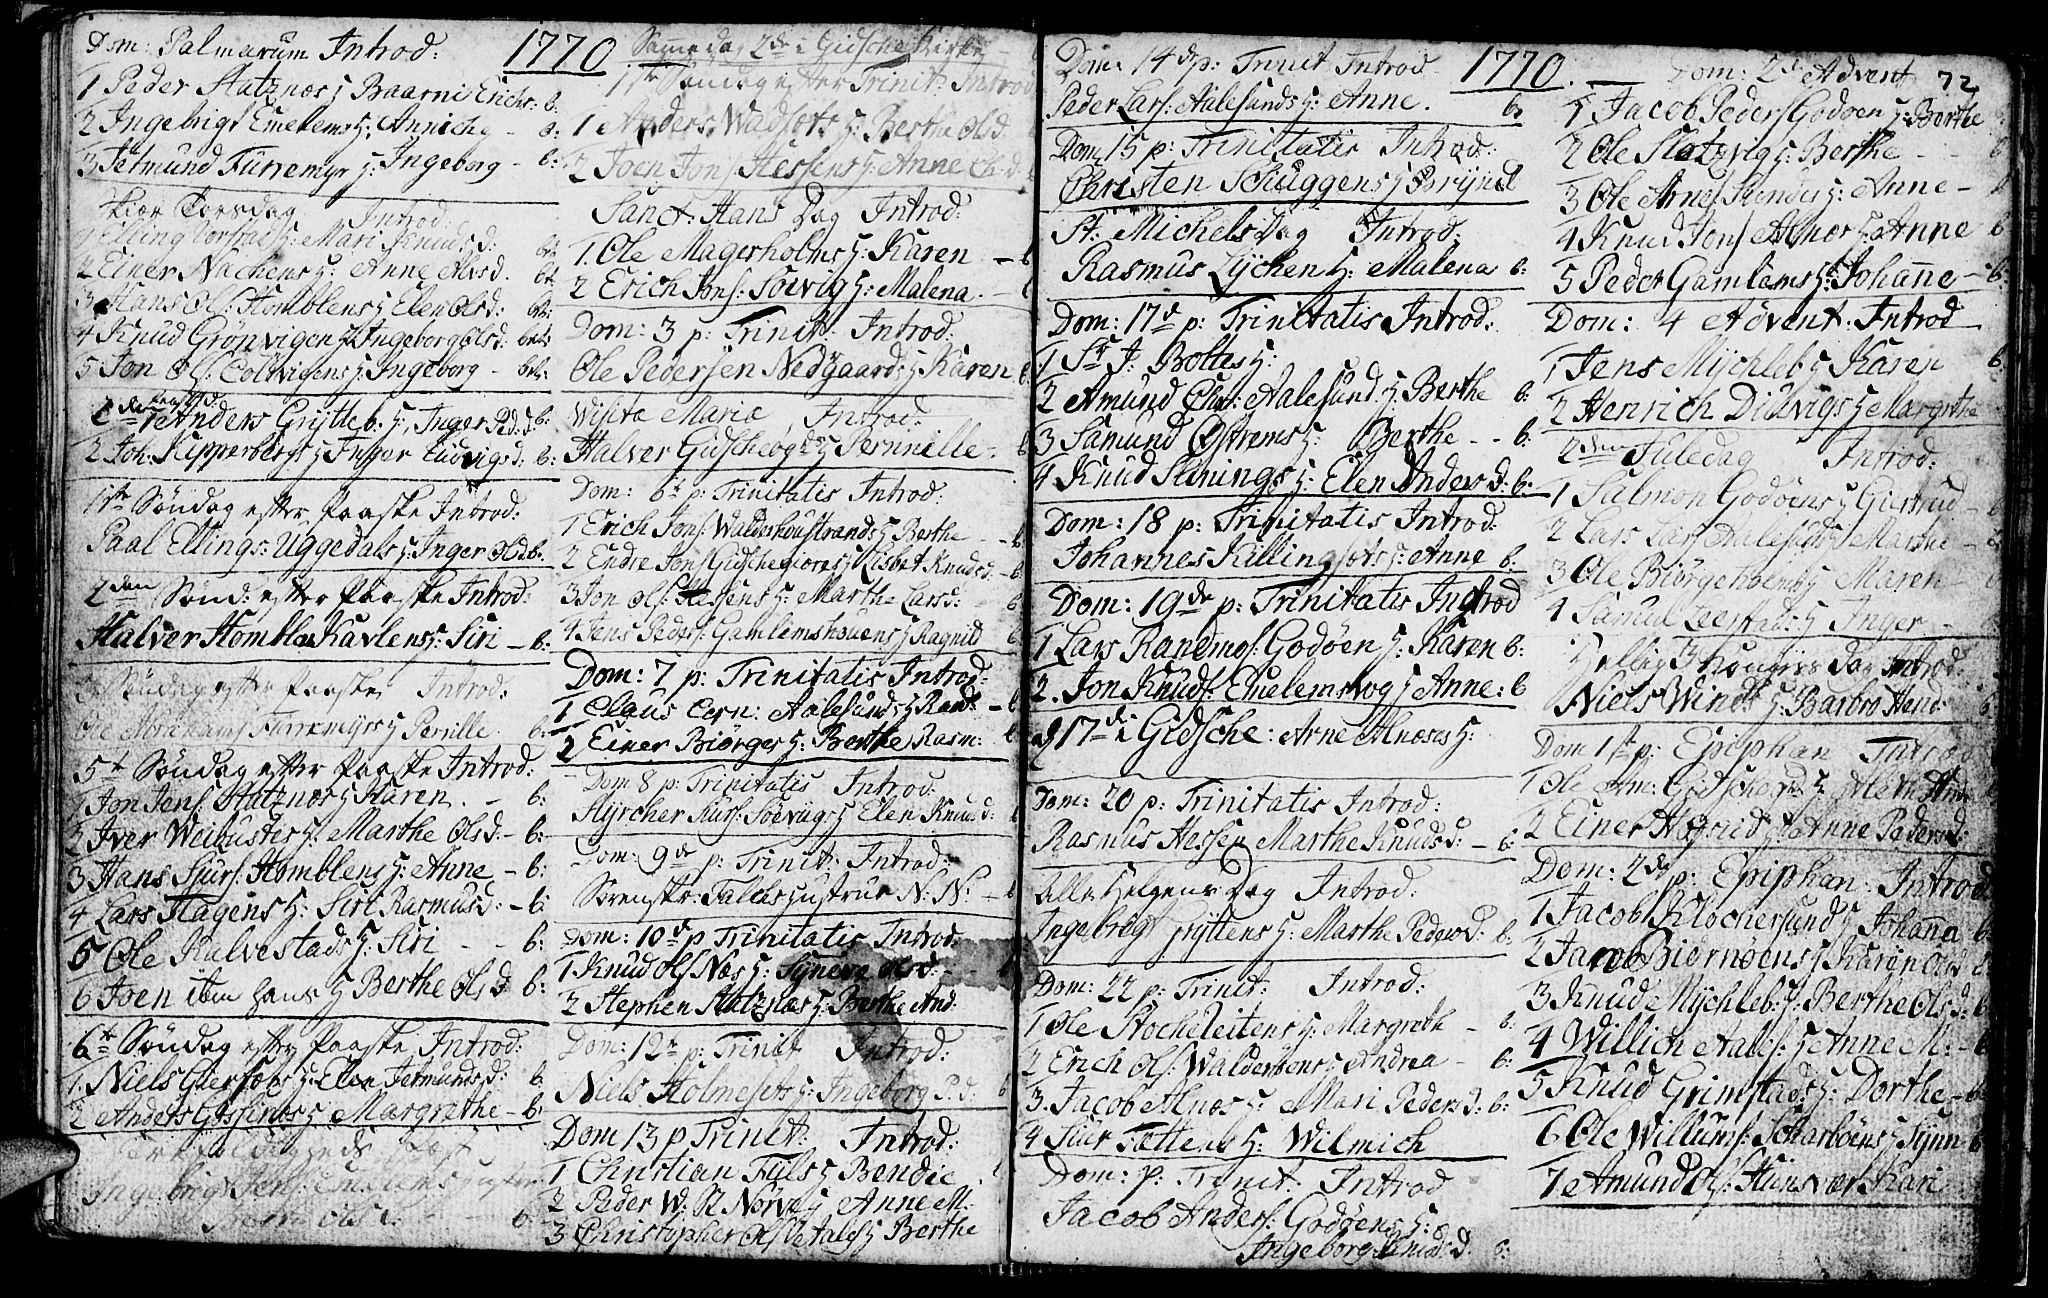 Dom: Palmarum Introd: 1770
1 Peder Slatznæs H Baarni Erichs: b:
2 Ingebrigt Emelems H: Anniche - b:
3 Jetmund Furremyr H: Ingeborg - b:
Skiær Torsdag Introd:
1 Elling H: Mari Knudsd:
2 Einer Nachens H: Anne Alvsd. bt.
3 Hans Ols: Homblens H Elen Olsd:
4 Knud Grönvigen H Ingeborg Olsd:
5 Jon Ols: Coltvigens H: Ingeborg -
2den Paasked:
1 Anders Grÿtteb. H: Inger Ped:d: b:
2 Joh: Klipperbergs H Inger Ludvigsd: b:
1ste Söndag efter Paaske Introd:
Paal Ellings: Uggedals H: Inger Olsd: b:
2den Sønd: efter Paaske Introd:
Halver Hombla Havlens H: Siri - b:
Söndag efter Paaske Introd:
Ole Abrahams Furremyrs H Pernille. b:
5te Söndag efter Paaske Introd:
1 Jon Jens: Slatznæs H Karen. - b:
2 Iver Weibustes H: Marthe Olsd: - b:
3 Hans Siurs: Homblens H: Anne - b:
4 Lars Hagens H: Siri Rasmusd: - b:
5 Ole Kalvestads H: Siri - - b:
6 Joen ibm hans H Berthe Olsd b:
6te Söndag efter Paaske Introd:
1. Niels Giersets H: Elen Jetmundsd: b
2 Anders Giersnæs H Margrethe - b:
Ingebrigt Jens: Emelems
Olsd. - - b:
Samme dag 2de i Gidsche Kirke -
1ste Søndag efter Trinit: Introd
1 Anders Wadsøts H: Berthe Olsd:
2 Joen Jons: Hessens H: Anne Ol:d:
Sanct: Hans Dag Introd:
1. Ole Magerholms H: Karen - b
2 Erich Jons: Soevig H: Malena. -
Dom: 3 p: Trinit: Introd:
Ole Pedersen Nedgaards H Karen b
Visita: Maria, Introd:
Halver Gidscheögds H Pernnille -
Dom: 6te p: Trinitatis Introd:
1 Erich Jons: Walderhoustrands H Berthe - -
2 Endre Jons: Gidschegiores H Lisbet Knudsd: - b:
3 Jon Ols: Hessens H: Marthe Larsd: b:
4 Jens Peders: Gamlemshouens H Ragnild b
Dom: 7 p: Trinitatis Introd:
1 Claus Cern: Aalesunds H Rand: - b
2 Einer Biörges H: Berthe Rasm:
Dom 8 p: Trinitatis Introd:
Hÿrcher Siurs: Söevigs H Elen Knudsd:
Dom: 9de p: Trinit: Introd:
Sorenskr: Falchs Hustrue N: N: -
Dom: 10de p Trinitatis Introd:
1 Knud Ols Næs H: Syneva Olsd: -
2 Stephen Slatznæs H: Berthe And:
Dom: 12te p: Trinit Introd:
Niels Holmesets H: Ingeborg P:d: b
Dom 13 p Trinit: Introd:
1 Christian Fals H Bendic.
2 Peder W: St Nörve H Anne M.
3 Christopher Ols: H Berthe
Dom: 14de p: Trinit Introd 1770.
Peder Lars: Aalesunds H: Anne. b:
Dom 15 p: Trinitatis Introd:
Christen Schuggens H Brÿnel
St: Michels Dag Introd:
Rasmus Lÿchen H: Malena b:
Dom: 17de p: Trinitatis Introd:
1 Sr J: Boltes H:
2 Amund Aalesund H Berthe b:
3 Samund Østrems H: Berthe - - b:
4 Knud Slinnings H: Elen Andersd: b:
Dom: 18 p: Trinitatis Introd:
Johannes Killingsøts H: Anne b:
Dom: 19de p: Trinitatis Introd
1 Lars Randms: Godöen H: Karen b:
2. Jon Knuds: Emelemshog H Anne: b
d 17de i Gidsche: Arne Alnæses H:
Dom: 20 p: Trinitatis Introd:
Rasmus Hessen Marthe Knudsd: - b:
Alle Helgens Dag Introd:
Ingebregt Grÿttens H: Marthe Pedersd: b:
Dom: 22 p: Trinit: Introd:
1 Ole Stocheleitens H: Margreth - b:
2 Erich Ols: Walderøens H Andrea - b:
3. Jacob Alnæs H: Mari Pedersd: b:
4 Siur Tøttens H: Wilmich
Dom: p: Trinit: Introd
Jacob Anders: Godöens H:
Ingeborg Amundsd: b:
Dom: 2d Advent 72
1 Jacob Peders Godøen H: Berthe
2 Ole Slotzvig H: Berthe - -
3 Ole Arnes H: Anne -
4 Knud Jons Alnæs H: Anne b
5 Peder Gamlems H: Johañe - b:
Dom: 4 Advent. Introd
1 Jens Mÿchleb H Karen b.
2 Henrich Didvigs H Margrethe
2den Juledag Introd:
1 Salmon Godöens H Giertrud
2 Lars Lars Aalesunds Marthe -
3 Ole Biörgehoens H Maren
4 Samul Leerstads H Inger -
Hellig 3 Kongers Dag Introd:
Niels Winds H: Barbro Hend:
Dom 1ste p: Epiphan Introd
1 Ole
2 Einer H: Anne Pedersd:
Dom: 2de p: Epiphan: Introd
1 Jacob Klochersund H Johaña b
2 Jacob Biørnøens H Karen Olsd b:
3 Knud Mÿchleb: H: Berthe Olsd: b
4 Willich Aales: H Anne M: - b
5 Knud Grimstads H: Dorthe - b:
6 Ole Willums: Scharböens H Sÿnn b
7 Amund Ols: Kari